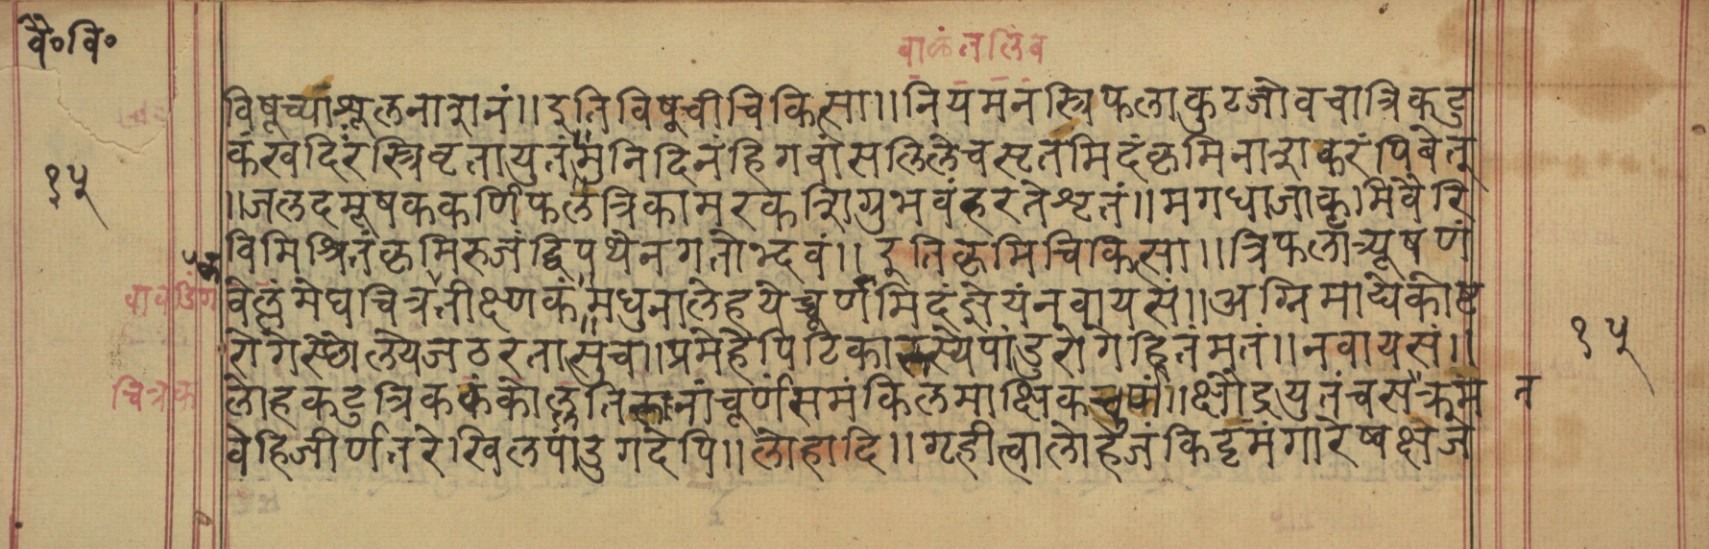 वै॰वि॰
वाळंतलिंव
विषूच्यांशूलनाशनं॥इतिविषूचीचिकित्सा॥नियमनंस्त्रिफलाकुटजोवचात्रिकटु
कंखदिरंस्त्रिवृतायुतं॥मुनिदिनंहिगवांसलिलेचसृतमिदंकृमिनाशकरंपिबेत्
१५
॥जलदमूषककर्णिफलत्रिकामरकशिग्रुभवंहरतेशृतं॥मगधाजाकृमिवैरि
विमिश्रितंकृमिरुजंद्विपथेनगतोभ्दवं॥इतिकृमिचिकित्सा॥त्रिफलात्र्यूषणं
वावडिंग
वेल्लंमेघचित्रतीक्ष्णकं॥मधुनालेहयेच्चूर्णमिदंज्ञेयंनवायसं॥अग्निमांद्येकोष्ट
रोगेस्छौल्येजठरतासुच॥प्रमेहेपिटिकापांडुरोगेहितंमतं॥नवायसं॥
१५
चित्रक
लोहकटुत्रिककंकोलतिचूर्णसमंकिलमाक्षिक॥क्षौद्रयुतंचसतक्रम न
वेहिजीर्णतरेखिलपांडुगदेपि॥लोहादि॥गृहीत्वालोहजंकिट्टमंगारेष्वक्षजे